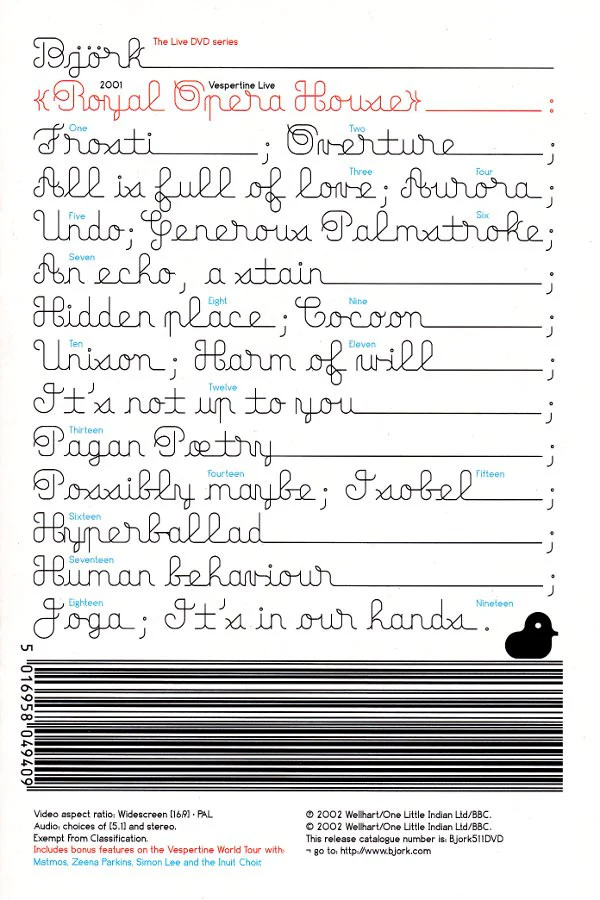 Björk The Live DVD series
2001 Vespertine Live
«Royal Opera House» :
One Two
Frosti ; Overture ;
Three Four
All is full of love; Aurora ;
Five Six
Undo; Generous Palmstroke;
Seven
An echo, a stain ;
Eight Nine
Hidden place ; Cocoon ;
Ten Eleven
Unison ; Harm of will ;
Twelve
It's not up to you ;
Thirteen
Pagan Pœtry ;
Fourteen Fifteen
Possibly maybe; Isobel ;
Sixteen
Hyperballad ;
Seventeen
Human behaviour ;
Eighteen Nineteen
Joga ; It's in our hands .
5 016958 049409
Video aspect ratio: Widescreen [16:9] · PAL
Audio: choices of [5.1] and stereo.
Exempt From Classification.
Includes bonus features on the Vespertine World Tour with:
Matmos, Zeena Parkins, Simon Lee and the Inuit Choir.
℗ 2002 Wellhart/One Little Indian Ltd/BBC.
© 2002 Wellhart/One Little Indian Ltd/BBC.
This release catalogue number is: Bjork511DVD
¬ go to: http://www.bjork.com